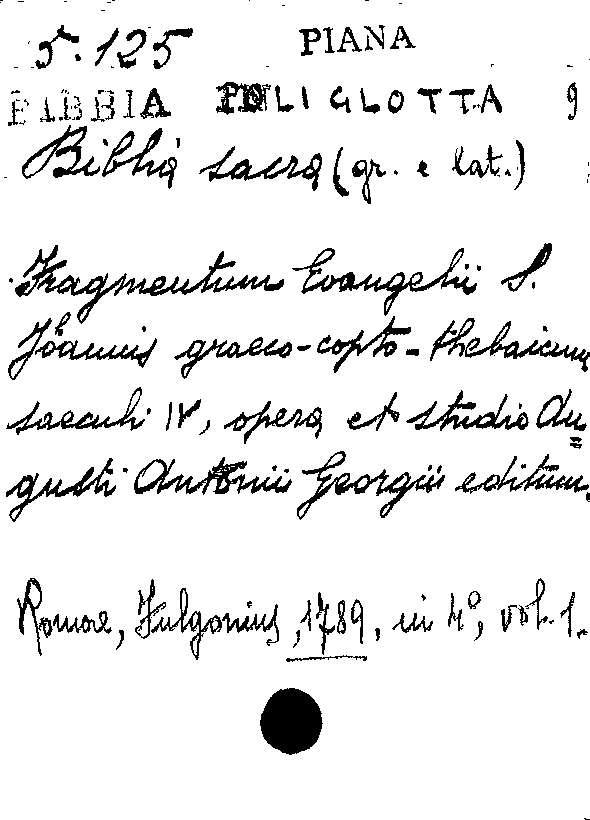 5.125 PIANA
BIBBIA POLIGLOTTA 9
Biblia sacra (gr. e lat.)
Fragmentum Evangelii S.
Joannis graeco-copto-thebaicum
saeculi IV, opera et studio Au=
gusti Antonii Georgii editum.
Romae, Fulgonius, 1789, in 4°, vol. 1.